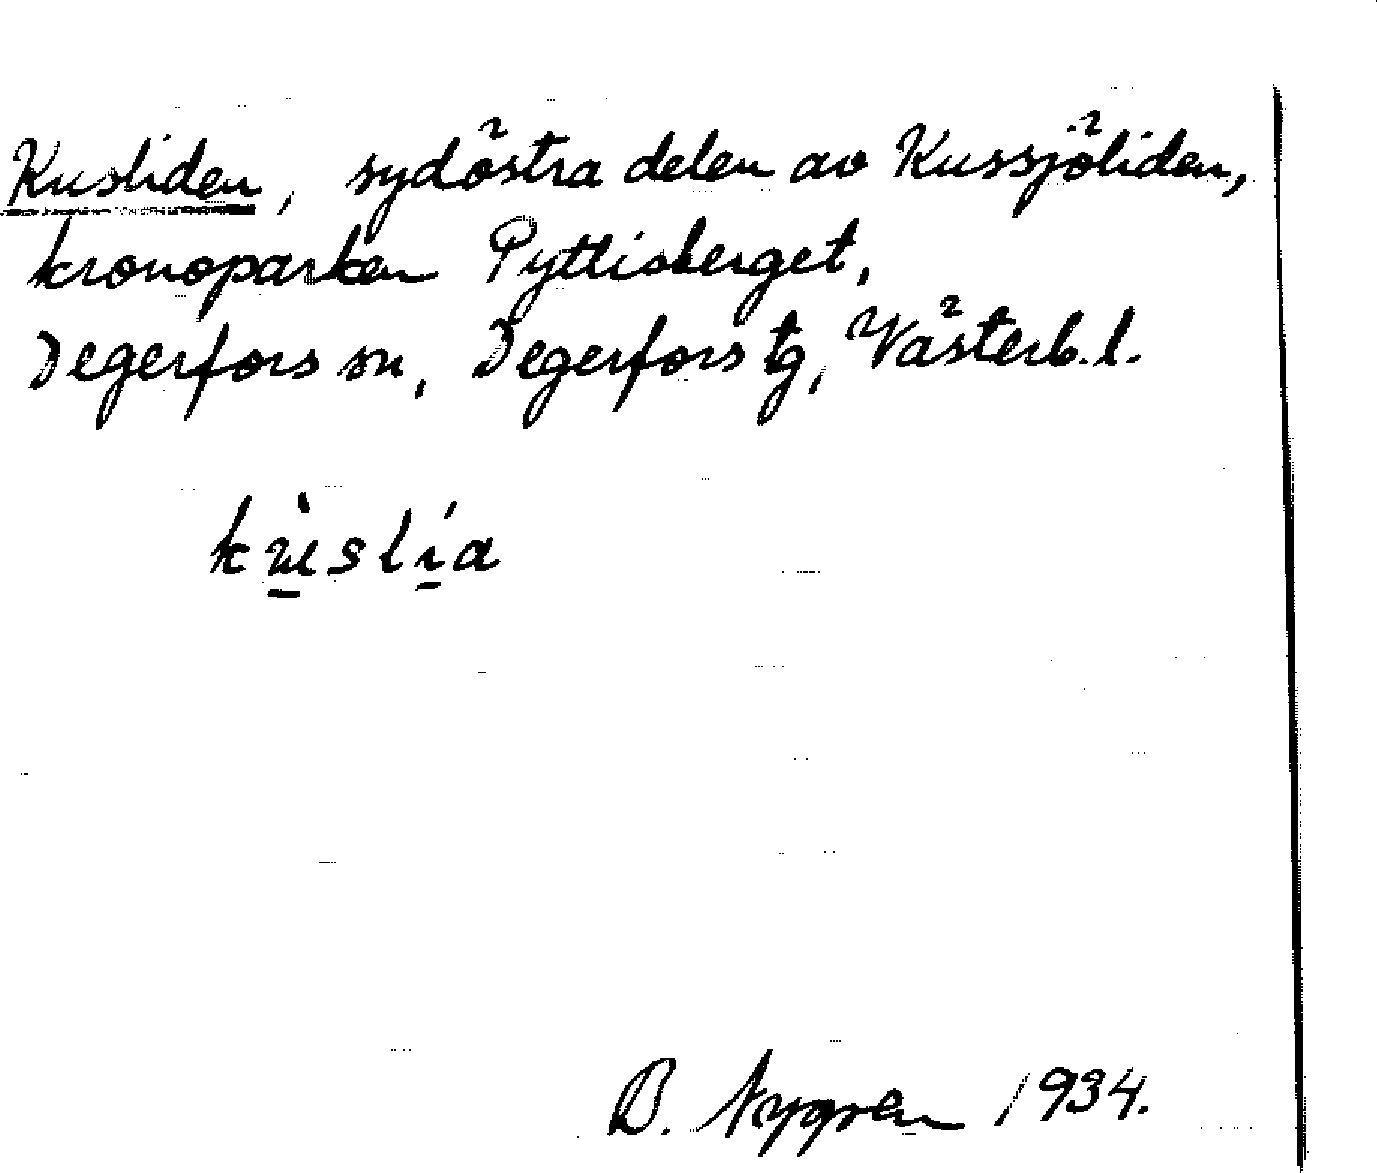 Kusliden, sydöstra delen av Kussjöliden,
kronoparken Pyttisberget,
Degerfors sn, Degerfors tg, Västerb. l.
kùslía
B. Nygren 1934.